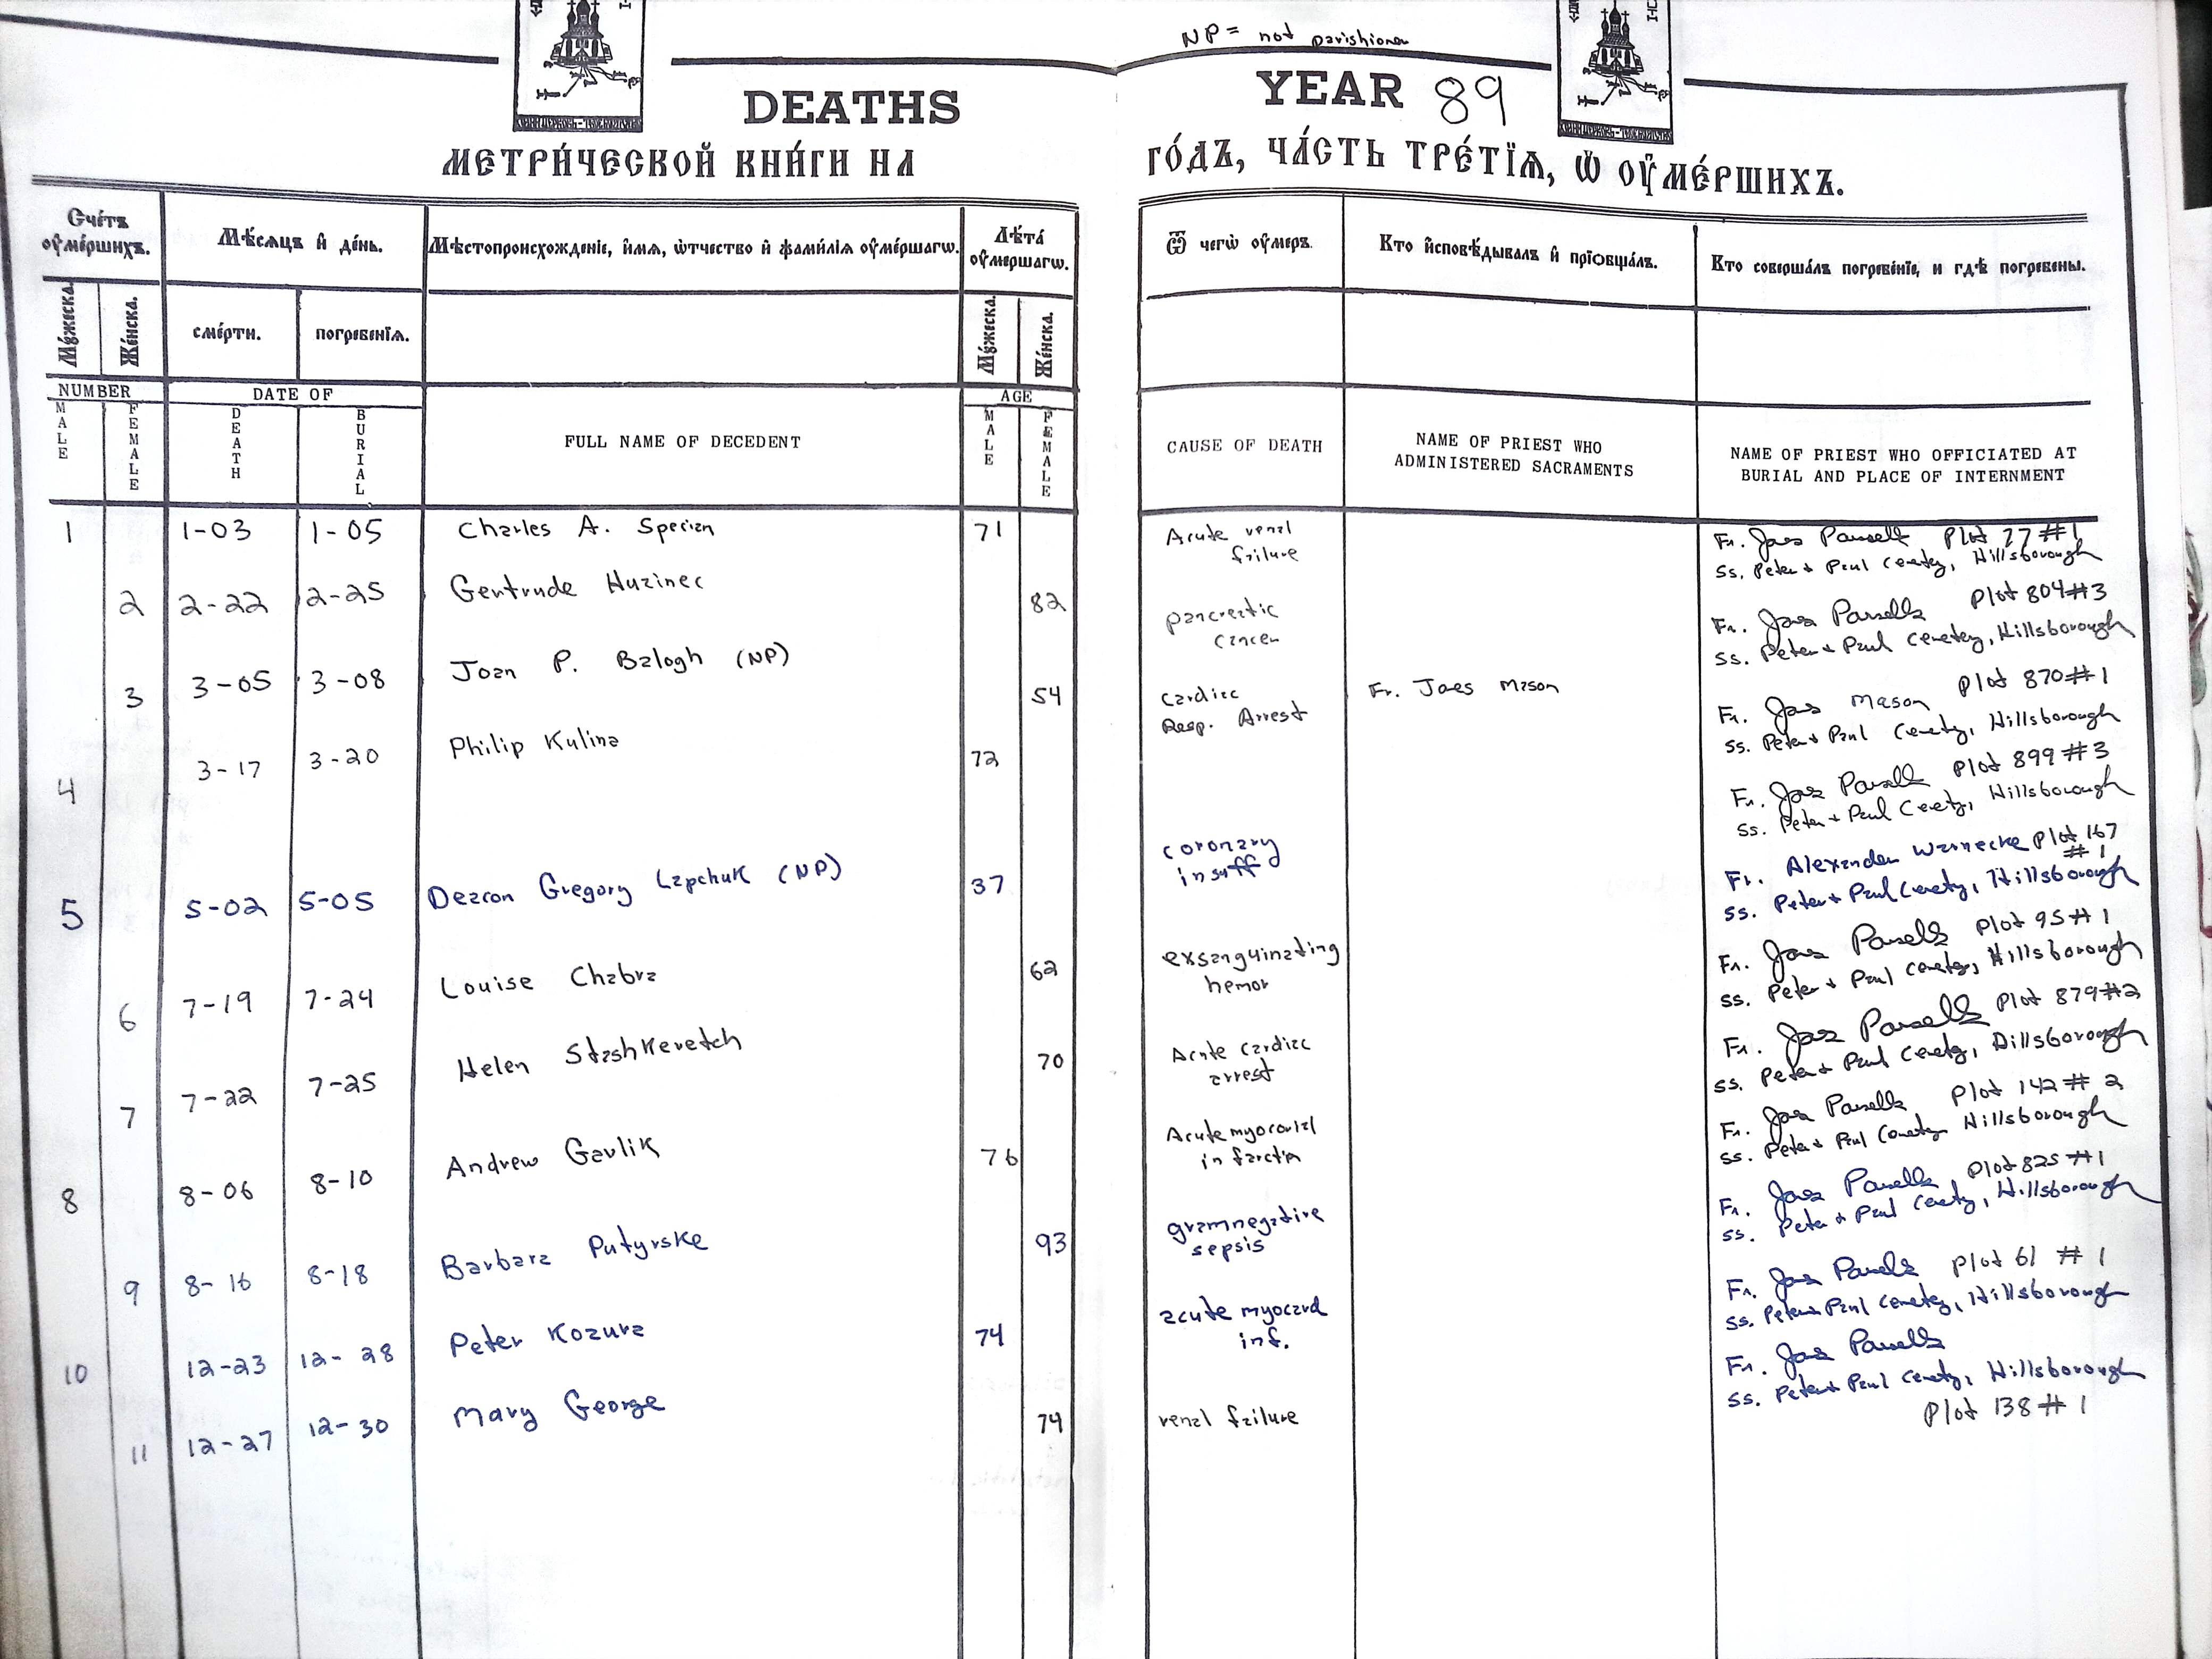 NP = not parishioner
DEATHS
YEAR 89
МЕТРИ́ЧЕСКОЙ КНИ́ГИ НА
ГО́ДЪ, ЧА́СТЬ ТРЕ́ТЇѦ, Ѡ ОУ҆МЕ́РШИХЪ.
Счéтъ оу҆мéршихъ.
Мѣ́сѧцъ и҆ дéнь.
Мѣстопроисхождéнїе, и҆́мѧ, ѻ҆́тчество и҆ фамилїѧ оу҆мéршагѡ.
Лѣтà оу҆мершагѡ.
Ѿ чегѡ̀ оу҆́меръ.
Кто и҆сповѣ́дывалъ и҆ прїѡбщáлъ.
Кто совершáлъ погребéнїе, и гдѣ̀ погребены.
Мꙋ́жеска.
Жéнска.
смéрти.
погребéнїѧ.
Мꙋ́жеска.
Жéнска.
NUMBER
DATE OF
AGE
MALE
FEMALE
DEATH
BURIAL
FULL NAME OF DECEDENT
MALE
FEMALE
CAUSE OF DEATH
NAME OF PRIEST WHO
ADMINISTERED SACRAMENTS
NAME OF PRIEST WHO OFFICIATED AT
BURIAL AND PLACE OF INTERNMENT
1 1-03 1-05 Charles A. Sperian 71 Acute renal
failure
Fr. James Parsells Plot 77 #1
SS. Peter + Paul Cemetery, Hillsborough
2 2-22 2-25 Gertrude Huzinec 82 pancreatic
cancer
Fr. James Parsells Plot 804 #3
SS. Peter + Paul Cemetery, Hillsborough
3 3-05 3-08 Joan P. Balogh (NP) 54 Cardiac
Resp. Arrest
Fr. Jaes Mason
Fr. James Mason Plot 870 #1
SS. Peter + Paul Cemetery, Hillsborough
4 3-17 3-20 Philip Kulina 72
Fr. James Parsells Plot 899 #3
SS. Peter + Paul Cemetery, Hillsborough
5 5-02 5-05 Deacon Gregory Lapchuk (NP) 37 coronary
insuff
Fr. Alexander Warnecke Plot 167
#1
SS. Peter + Paul Cemetery, Hillsborough
6 7-19 7-24 Louise Chabra 62 exsanguinating
hemor
Fr. James Parsells Plot 95 #1
SS. Peter + Paul Cemetery, Hillsborough
7 7-22 7-25 Helen Stashkevetch 70 Acute cardiac
arrest
Fr. James Parsells Plot 879 #2
SS. Peter + Paul Cemetery, Hillsborough
8 8-06 8-10 Andrew Gavlik 76 Acute myocovial
infarctin
Fr. James Parsells Plot 142 # 2
SS. Peter + Paul Cemetery Hillsborough
9 8-16 8-18 Barbara Putyrske 93 gramnegative
sepsis
Fr. James Parsells Plot 825 #1
SS. Peter + Paul Cemetery, Hillsborough
10 12-23 12-28 Peter Kozura 74 acute myocard
inf.
Fr. James Parsells Plot 61 # 1
SS. Peter + Paul Cemetery, Hillsborough
11 12-27 12-30 Mary George 74 renal failure
Fr. James Parsells
SS. Peter + Paul Cemetery, Hillsborough
Plot 138 # 1